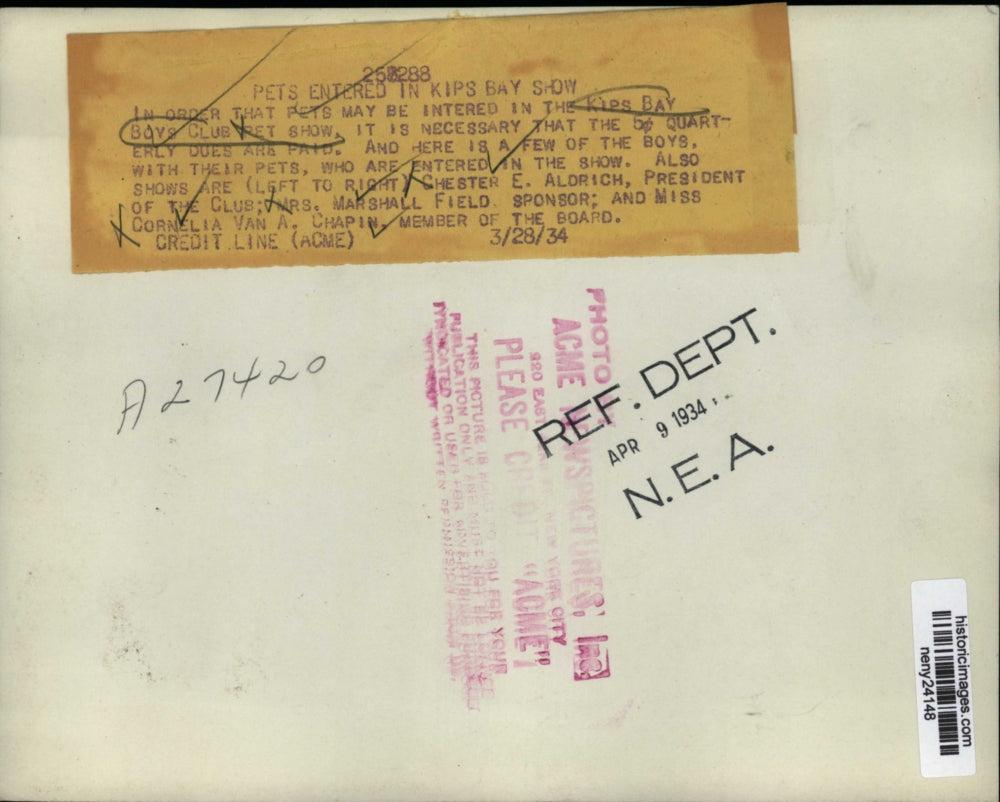 258288
PETS ENTERED IN KIPS BAY SHOW
IN ORDER THAT PETS MAY BE INTERED IN THE KIPS BAY
BOYS CLUB PET SHOW, IT IS NECESSARY THAT THE 5¢ QUART-
ERLY DUES ARE PAID. AND HERE IS A FEW OF THE BOYS,
WITH THEIR PETS, WHO ARE ENTERED IN THE SHOW. ALSO
SHOWS ARE (LEFT TO RIGHT) CHESTER E. ALDRICH, PRESIDENT
OF THE CLUB; MRS. MARSHALL FIELD SPONSOR; AND MISS
CORNELIA VAN A. CHAPIN, MEMBER OF THE BOARD.
CREDIT LINE (ACME) 3/28/34
A27420
PHOTO
ACME NEWSPICTURES, Inc
220 EAST NEW YORK CITY
PLEASE CREDIT "ACME"
THIS PICTURE IS SOLD TO YOU FOR YOUR
PUBLICATION ONLY AND MUST NOT BE
SYNDICATED OR USED FOR ADVERTISING
WITHOUT WRITTEN PERMISSION
REF. DEPT.
APR 9 1934
N. E. A.
historicimages.com
neny24148